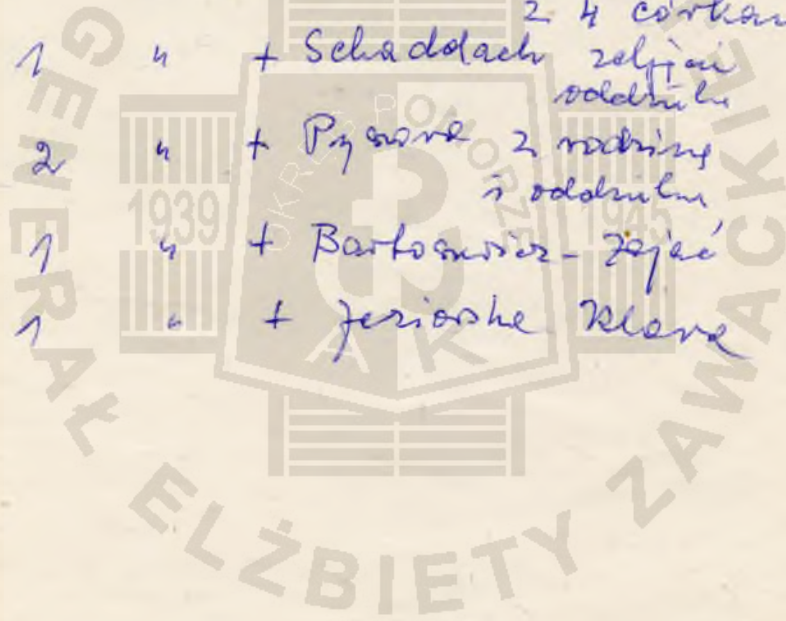 z 4 córkam
1 " + Schaddach zdjęcie
oddzielne
2 " + Pysiora z rodziną
i oddzielne
1 " + Bartosiewicz-Zając
1 " + Jeziorska Klara
GENERAŁ ELŻBIETY ZAWACKIE
OKRĘG POMORZE
1939 1945
AK